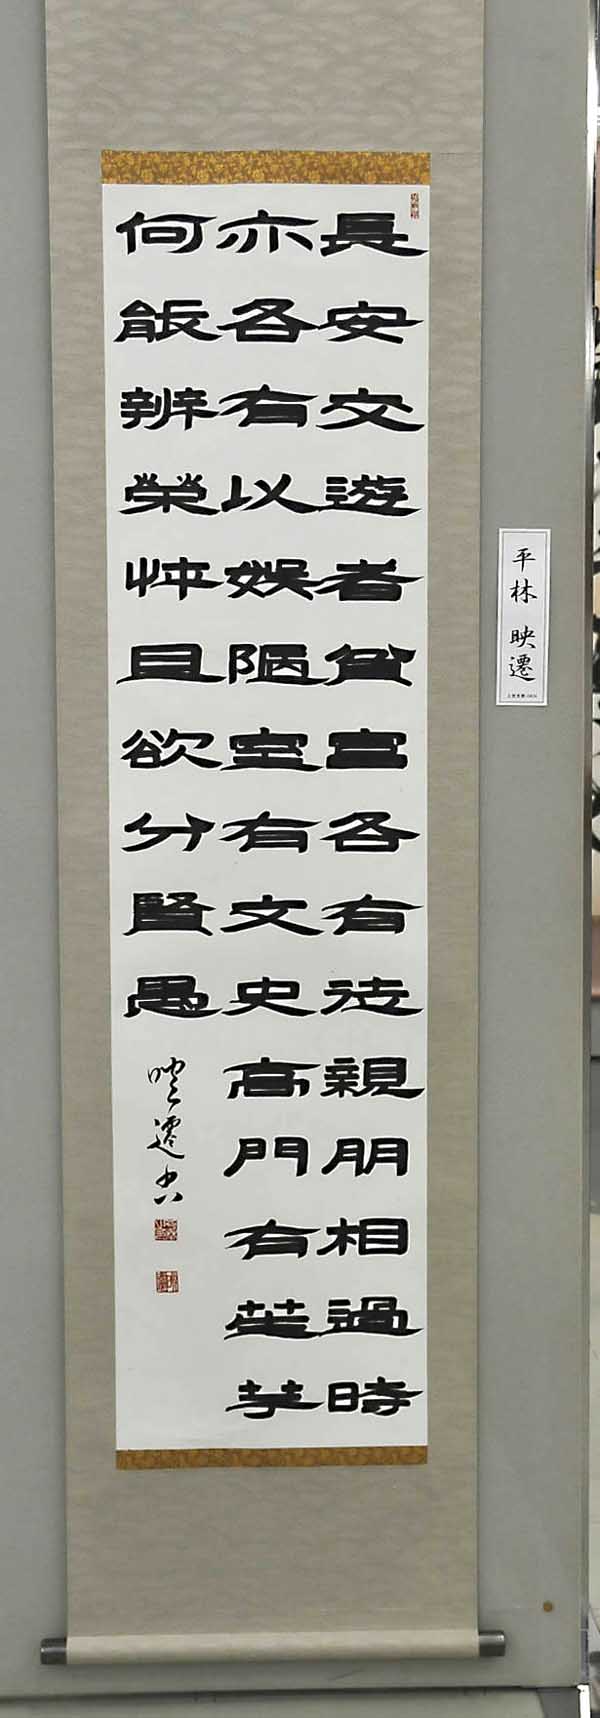 長安交遊者貧富各有徒親朋相過時
亦各有以娛陋室有文史高門有笙竽
何能辨榮悴且欲分賢愚
映遷書
平林 映遷